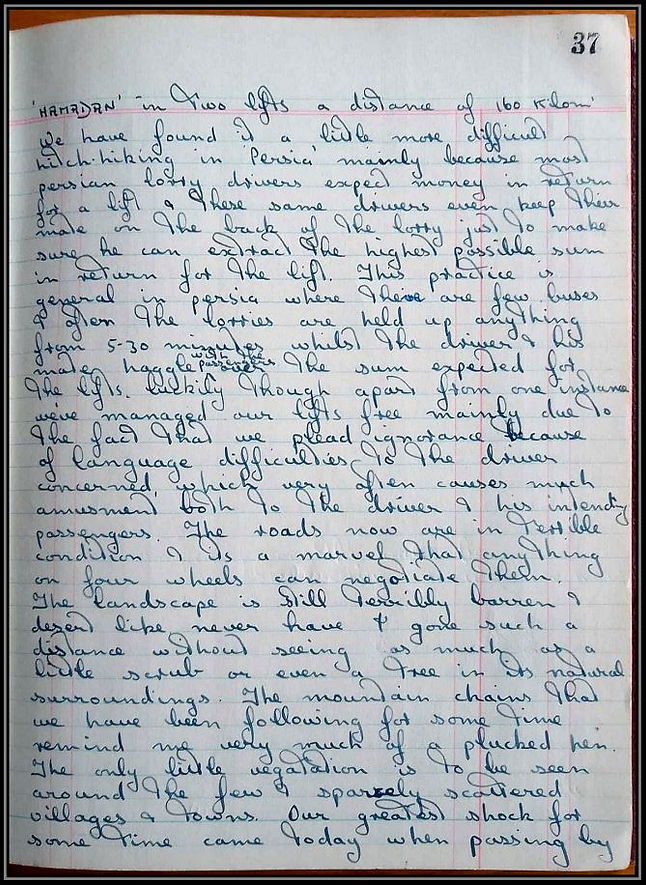 37
'HAMADAN' in two lifts a distance of 160 Kilom'
We have found it a little more difficult
hitch-hiking in 'Persia' mainly because most
persian lorry drivers expect money in return
for a lift & these same drivers even keep their
mate on the back of the lorry just to make
sure he can extract the highest possible sum
in return for the lift. This practice is
general in persia where there are few buses
& often the lorries are held up anything
from 5-30 minutes whilst the driver & his
mate haggle with the passengers over the sum expected for
the lifts. luckily though apart from one instance
weve managed our lifts free mainly due to
the fact that we plead ignorance because
of language difficulties to the driver
concerned, which very often causes much
amusment both to the driver & his intending
passengers. The roads now are in terrible
condition & its a marvel that anything
on four wheels can negotiate them.
The landscape is still terribly barren &
desert like never have I gone such a
distance without seeing as much as a
little scrub or even a tree in its natural
surroundings. The mountain chains that
we have been following for some time
remind me very much of a plucked hen.
The only little vegatation is to be seen
around the few & sparsely scattered
villages & towns. Our greatest shock for
some time came today when passing by